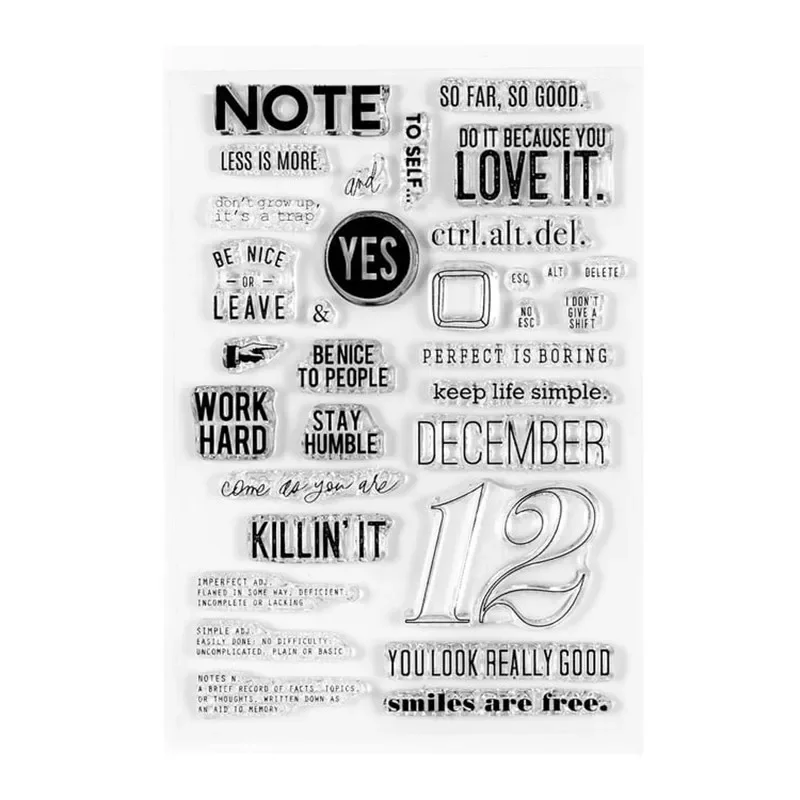 NOTE
TO SELF...
SO FAR, SO GOOD.
LESS IS MORE.
and
DO IT BECAUSE YOU
LOVE IT.
don't grow up,
it's a trap
YES
ctrl.alt.del.
BE NICE
- OR -
LEAVE
&
ESC
ALT
DELETE
NO
ESC
I DON'T
GIVE A
SHIFT
BE NICE
TO PEOPLE
PERFECT IS BORING
keep life simple.
WORK
HARD
STAY
HUMBLE
DECEMBER
come as you are
12
KILLIN' IT
IMPERFECT ADJ.
FLAWED IN SOME WAY, DEFICIENT,
INCOMPLETE OR LACKING
SIMPLE ADJ.
EASILY DONE; NO DIFFICULTY
UNCOMPLICATED, PLAIN OR BASIC
NOTES N.
A BRIEF RECORD OF FACTS, TOPICS,
OR THOUGHTS, WRITTEN DOWN AS
AN AID TO MEMORY.
YOU LOOK REALLY GOOD
smiles are free.